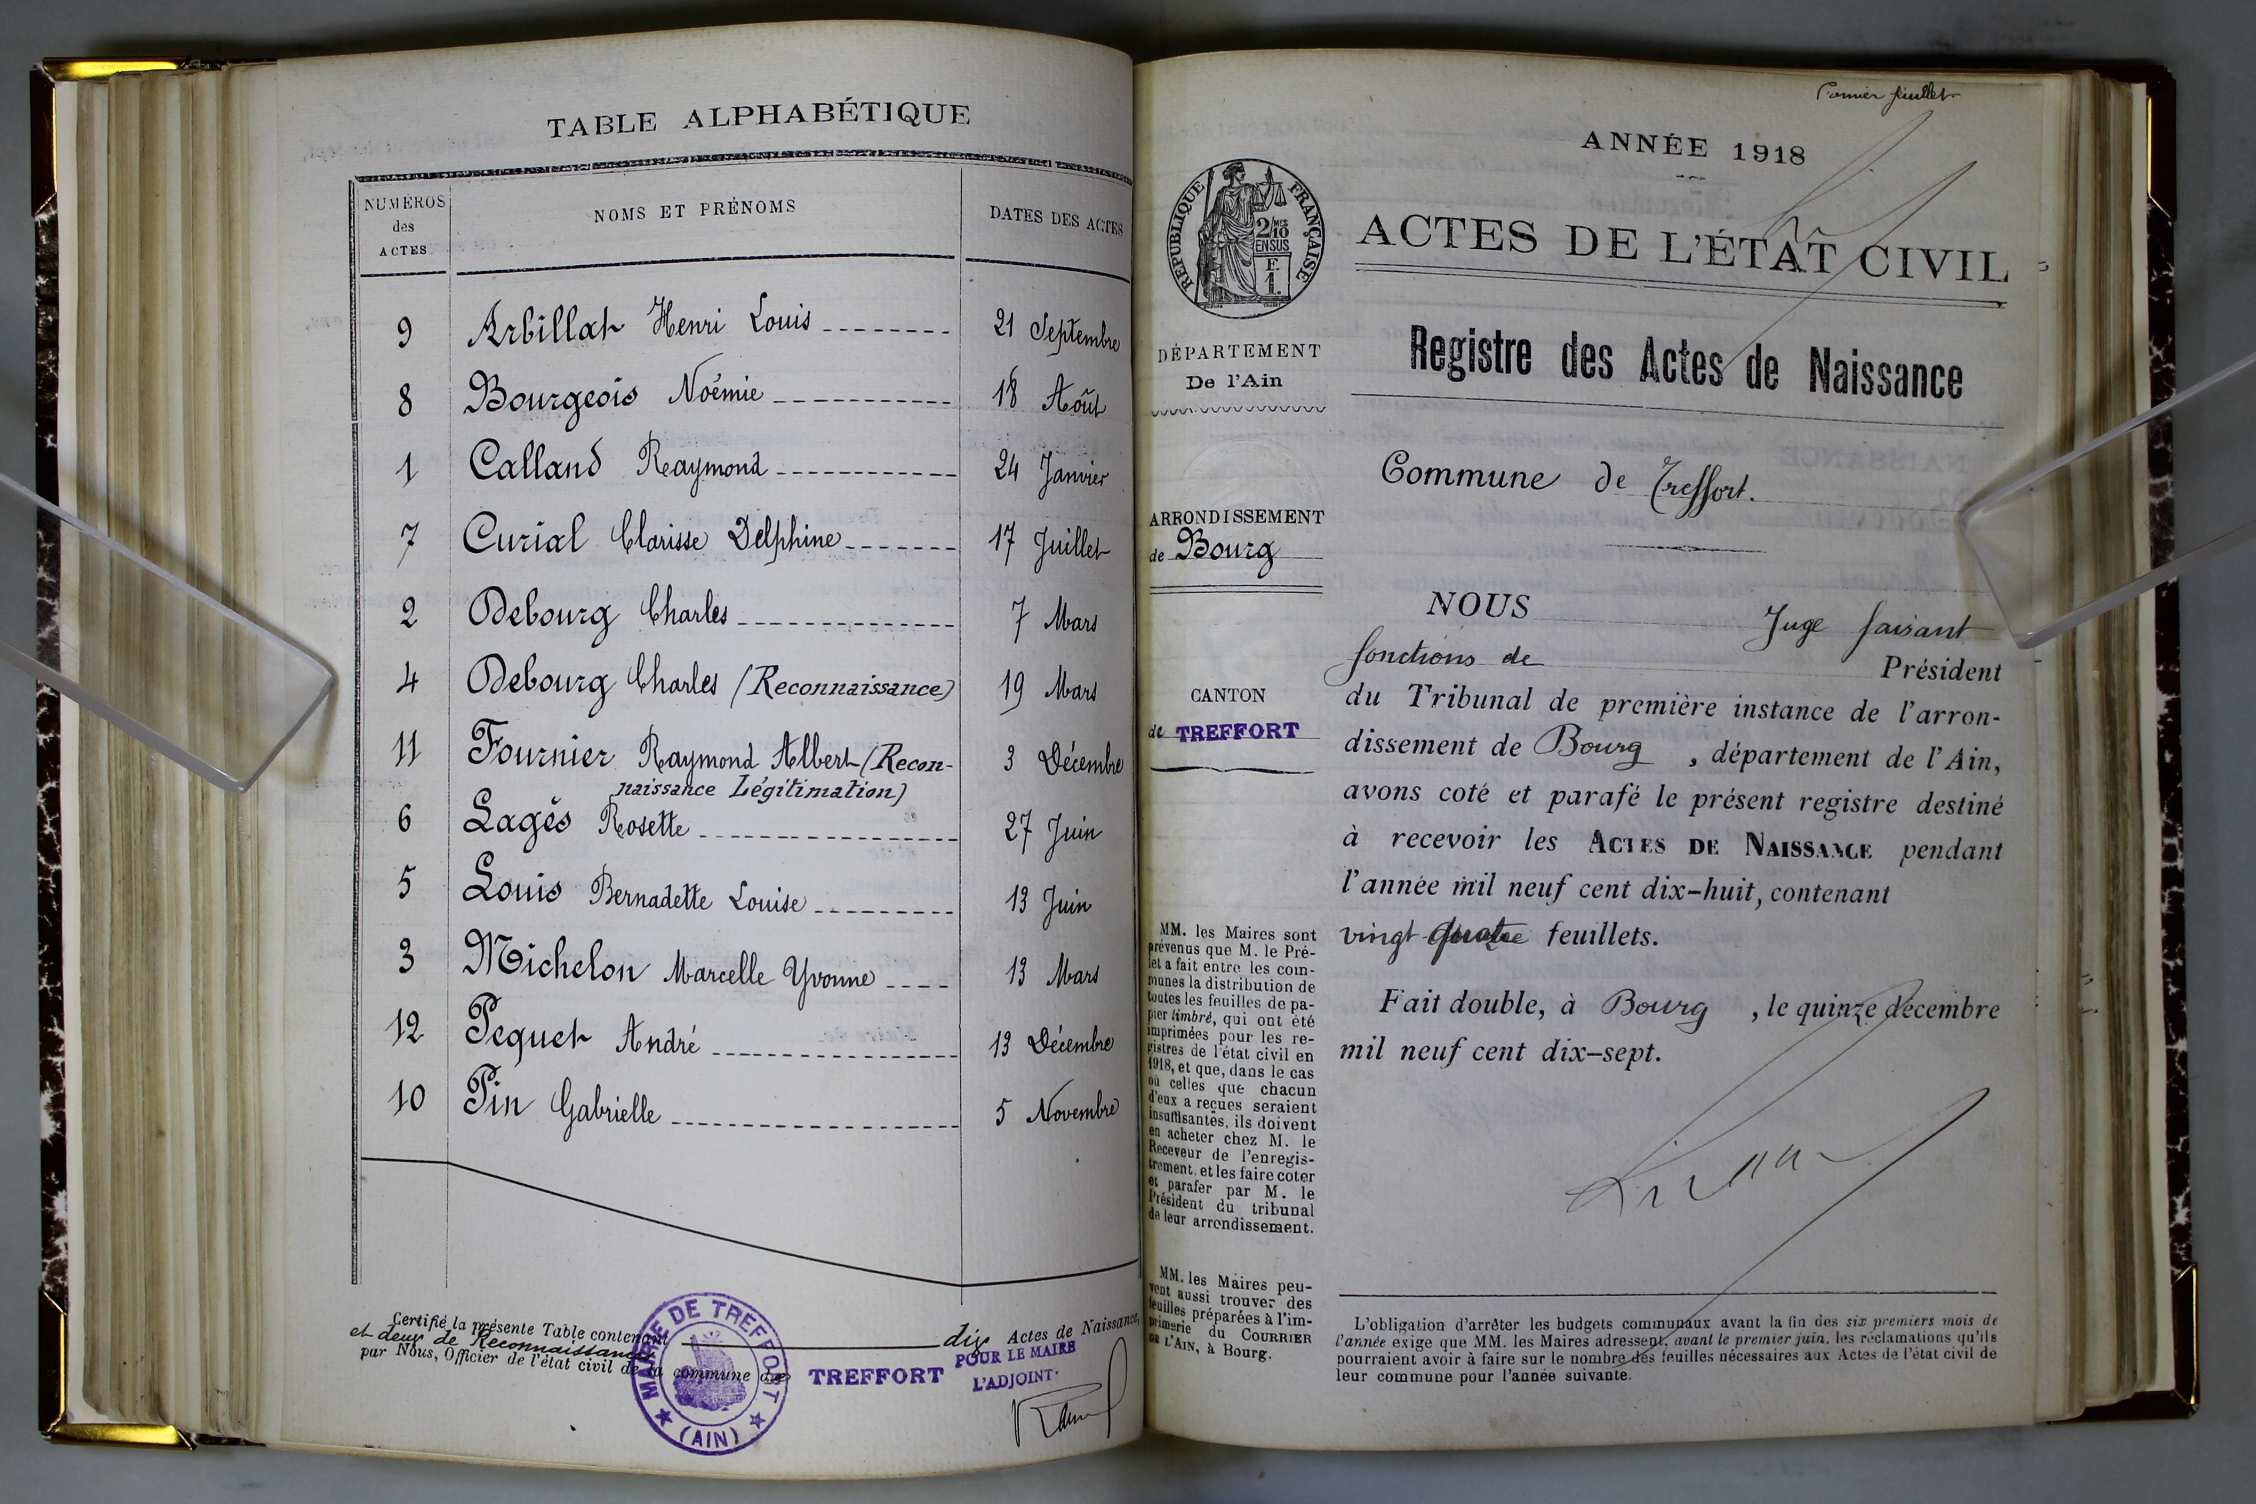 TABLE ALPHABÉTIQUE
NUMÉROS
des
ACTES
NOMS ET PRÉNOMS
DATES DES ACTES
9 Arbillat Henri Louis 21 Septembre
8 Bourgeois Noémie 18 Août
1 Calland Raymond 24 Janvier
7 Curial Clarisse Delphine 17 Juillet
2 Debourg Charles 7 Mars
4 Debourg Charles (Reconnaissance) 19 Mars
11 Fournier Raymond Albert (Recon- 3 Décembre
naissance Légitimation)
6 Lagès Rosette 27 Juin
5 Louis Bernadette Louise 13 Juin
3 Michelon Marcelle Yvonne 13 Mars
12 Pequet André 13 Décembre
10 Pin Gabrielle 5 Novembre
Certifié la présente Table contenant dix Actes de Naissance,
et deux de Reconnaissance
par Nous, Officier de l'état civil de la commune de TREFFORT
POUR LE MAIRE
L'ADJOINT.
MAIRIE DE TREFFORT
(AIN)
Premier feuillet
ANNÉE 1918
ACTES DE L'ÉTAT CIVIL
RÉPUBLIQUE FRANÇAISE
2/10
EN SUS
F.
1.
Registre des Actes de Naissance
DÉPARTEMENT
De l'Ain
Commune de Treffort.
ARRONDISSEMENT
de Bourg
CANTON
de TREFFORT
NOUS Juge faisant
fonctions de Président
du Tribunal de première instance de l'arron-
dissement de Bourg , département de l'Ain,
avons coté et parafé le présent registre destiné
à recevoir les ACTES DE NAISSANCE pendant
l'année mil neuf cent dix-huit, contenant
vingt quatre feuillets.
Fait double, à Bourg , le quinze décembre
mil neuf cent dix-sept.
MM. les Maires sont
prévenus que M. le Pré-
fet a fait entre les com-
munes la distribution de
toutes les feuilles de pa-
pier timbré, qui ont été
imprimées pour les re-
gistres de l'état civil en
1918, et que, dans le cas
où celles que chacun
d'eux a reçues seraient
insuffisantes, ils doivent
en acheter chez M. le
Receveur de l'enregis-
trement, et les faire coter
et parafer par M. le
Président du tribunal
de leur arrondissement.
MM. les Maires peu-
vent aussi trouver des
feuilles préparées à l'im-
primerie du COURRIER
DE L'AIN, à Bourg.
L'obligation d'arrêter les budgets communaux avant la fin des six premiers mois de
l'année exige que MM. les Maires adressent, avant le premier juin, les réclamations qu'ils
pourraient avoir à faire sur le nombre des feuilles nécessaires aux Actes de l'état civil de
leur commune pour l'année suivante.